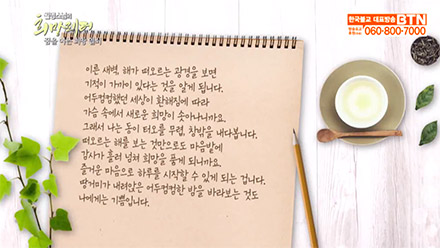 희망편지
한국불교 대표방송 BTN
060-800-7000
이른 새벽, 해가 떠오르는 광경을 보면
기적이 가까이 있다는 것을 알게 됩니다.
어두컴컴했던 세상이 환해짐에 따라
가슴 속에서 새로운 희망이 솟아나니까요.
그래서 나는 동이 터오를 무렵, 창밖을 내다봅니다.
떠오르는 해를 보는 것만으로도 마음밭에
감사가 흘러 넘쳐 희망을 품게 되니까요.
즐거운 마음으로 하루를 시작할 수 있게 되는 겁니다.
땅거미가 내려앉은 어두컴컴한 밤을 바라보는 것도
나에게는 기쁨입니다.